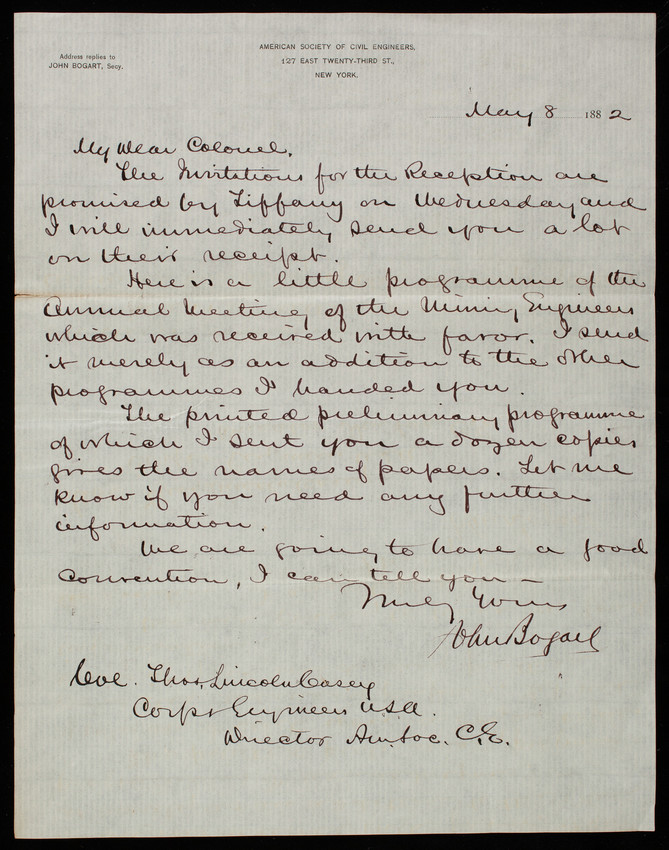 Address replies to
JOHN BOGART, Secy.
AMERICAN SOCIETY OF CIVIL ENGINEERS,
127 EAST TWENTY-THIRD ST.,
NEW YORK.
May 8 1882
My Dear Colonel,
The Invitations for the Reception are
promised by Tiffany on Wednesday and
I will immediately send you a lot
on their receipt.
Here is a little programme of the
Annual Meeting of the Mining Engineers
which was received with favor. I send
it merely as an addition to the other
programmes I handed you.
The printed preliminary programme
of which I sent you a dozen copies
gives the names of papers. Let me
know if you need any further
information.
We are going to have a good
convention, I can tell you —
Truly Yours
John Bogart
Col. Thos. Lincoln Casey
Corps Engineers U.S.A.
Director Am. Soc. C.E.